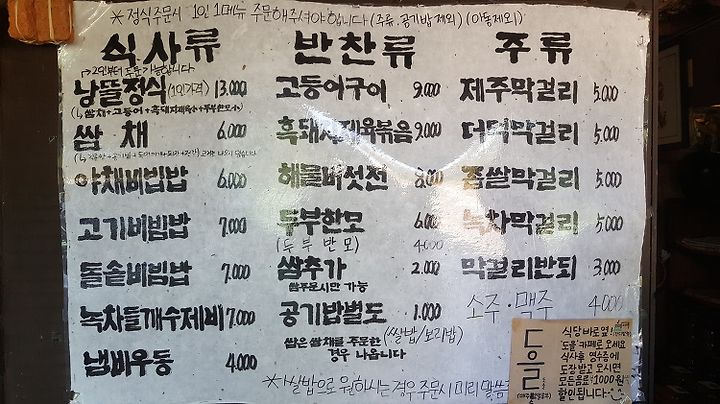 ※정식주문시 1인 1메뉴 주문해주셔야합니다 (주류, 공기밥 제외) (아동제외)
식사류
↱2인부터 주문가능합니다
낭뜰정식(1인가격) 13,000
(↳쌈채+고등어+흑돼지제육소+두부한모소)
쌈채 6,000
야채비빔밥 6,000
고기비빔밥 7,000
돌솥비빔밥 7,000
녹차들깨수제비 7,000
냄비우동 4,000
반찬류
고등어구이 9,000
흑돼지제육볶음 9,000
해물버섯전 8,000
두부한모 6,000
(두부반모) 4,000
쌈추가 2,000
쌈주문시만 가능
공기밥별도 1,000
(쌀밥/보리밥)
쌈은 쌈채를 주문한
경우 나옵니다
※쌀밥으로 원하시는 경우 주문시 미리 말씀
주류
제주막걸리 5,000
더덕막걸리 5,000
좁쌀막걸리 5,000
녹차막걸리 5,000
막걸리반되 3,000
소주·맥주 4,000
도을
식당 바로옆!
'도을'카페로 오세요
식사후 영수증에
도장 받고 오시면
모든음료 1000원
할인됩니다